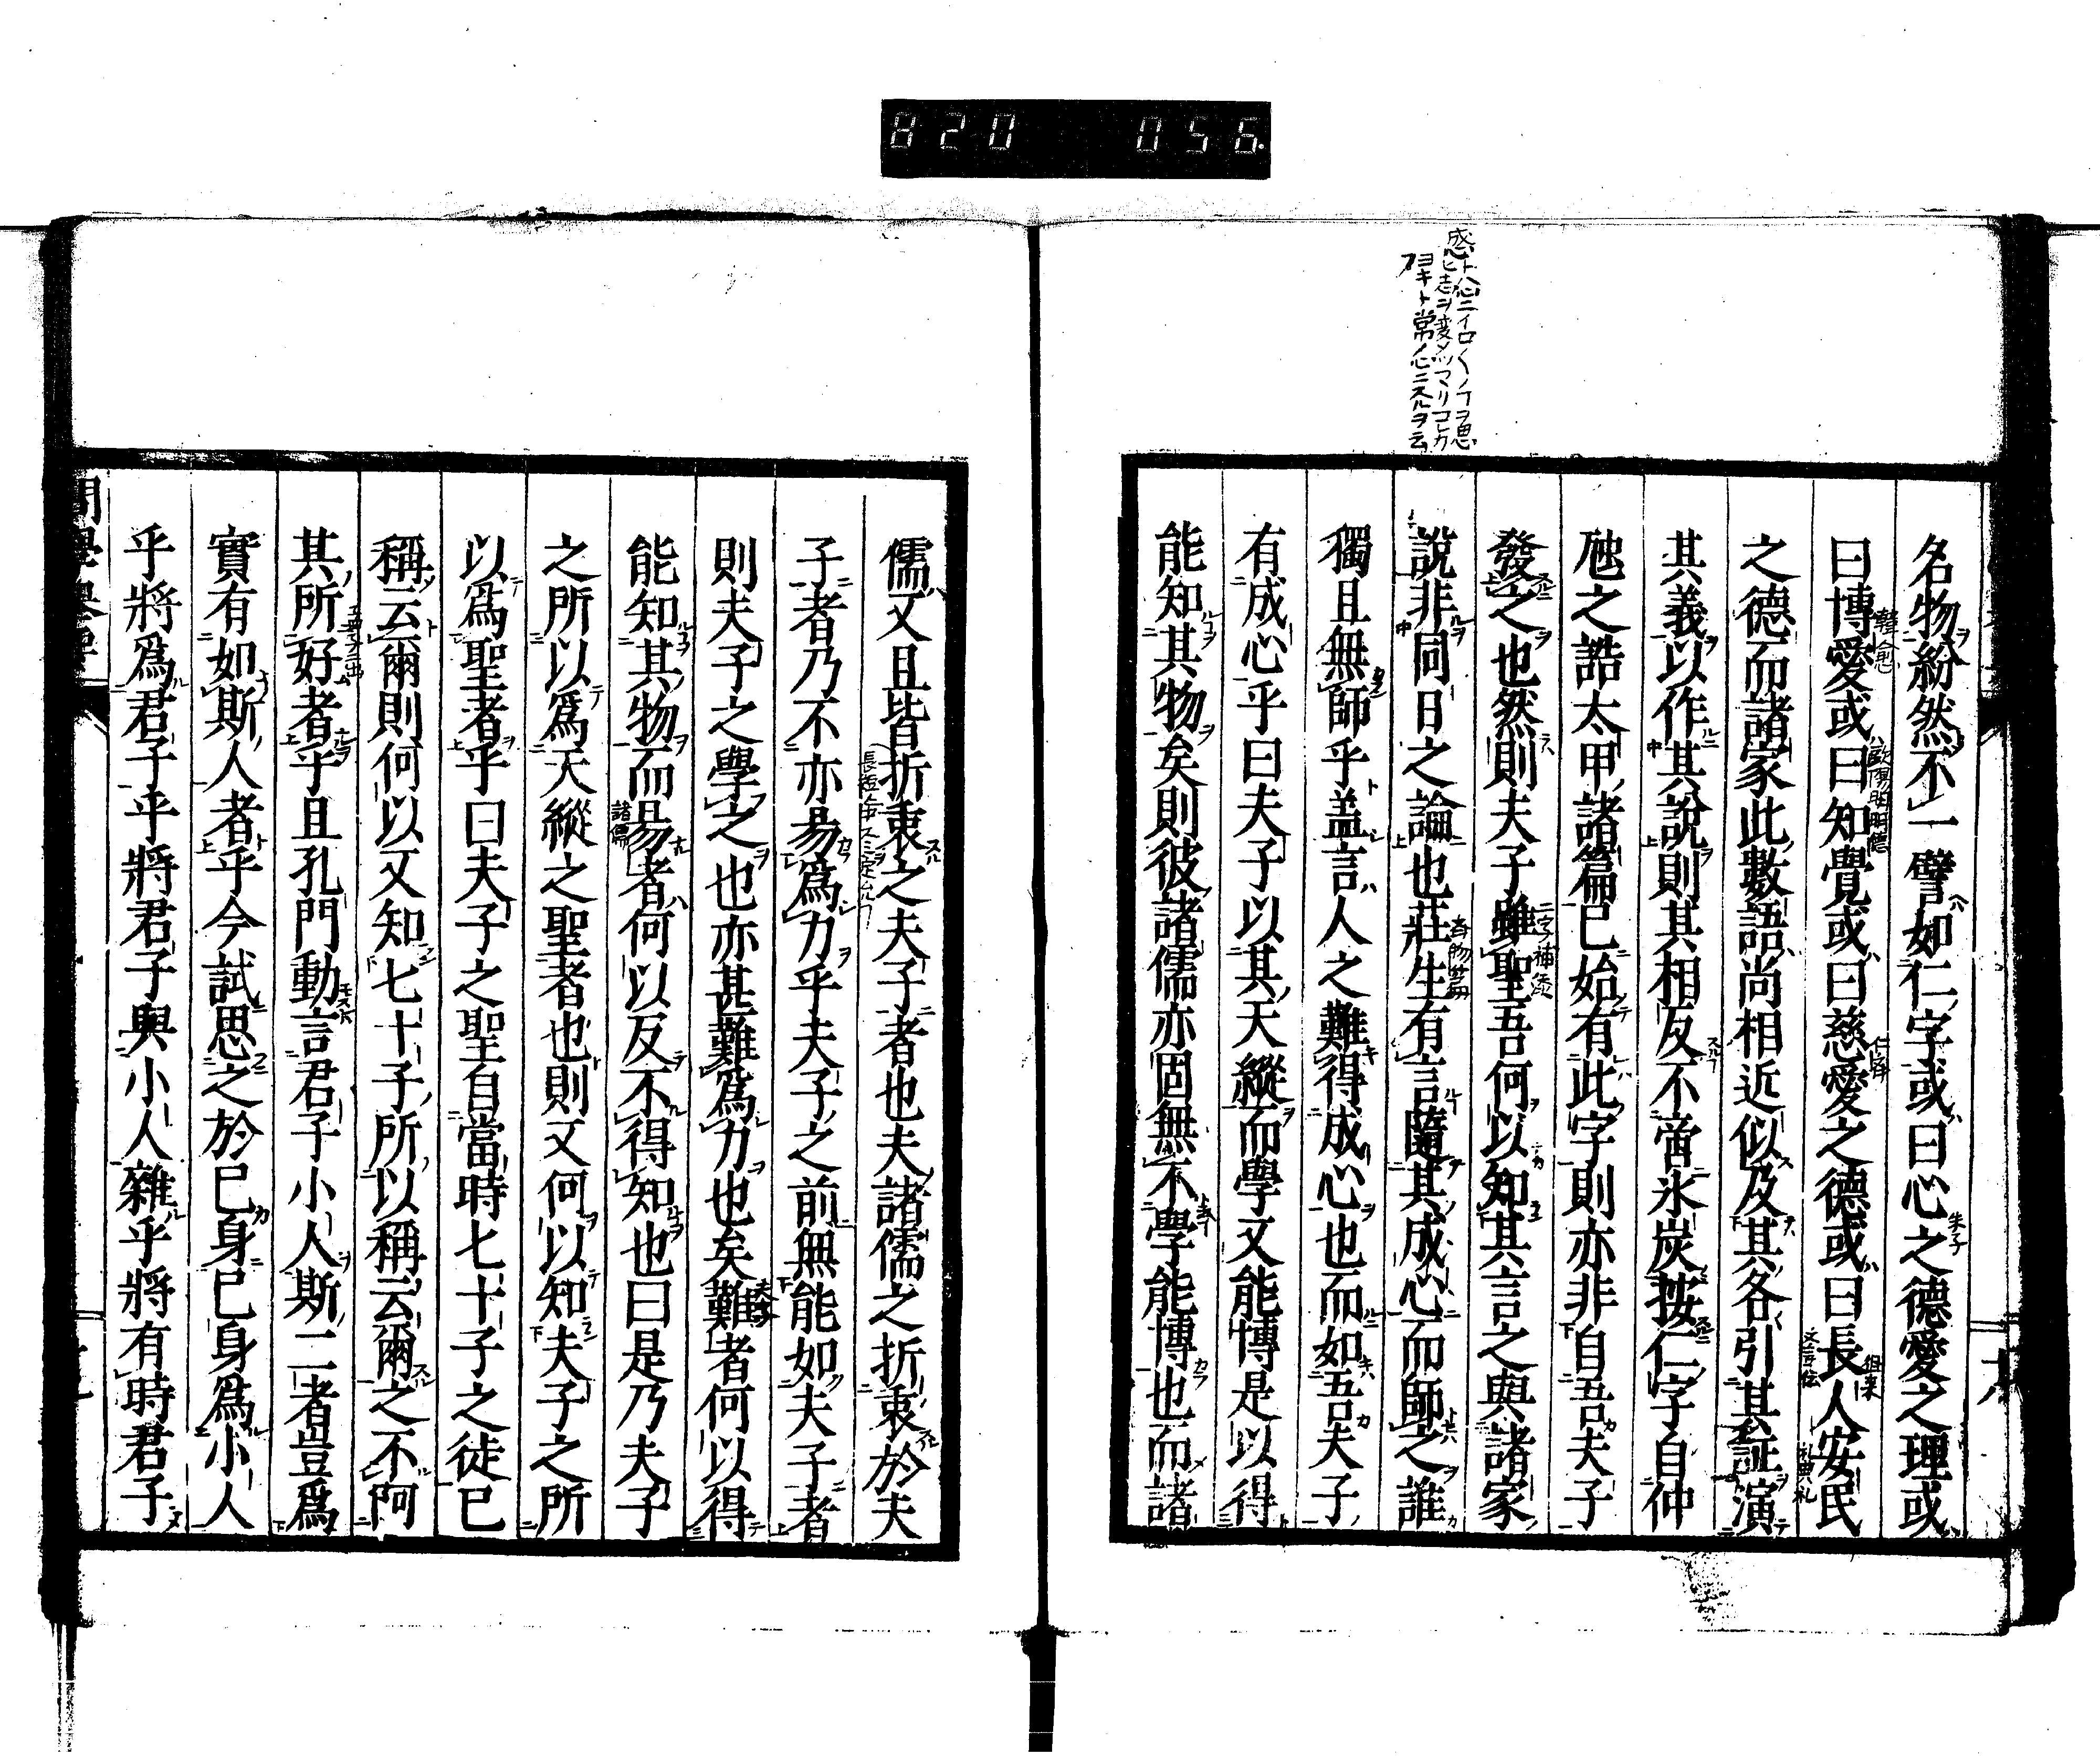 820 056.
名物紛然不一譬如仁字或曰心之德愛之理或
曰博愛或曰知覺或曰慈愛之德或曰長人安民
之德而諸家此數語尚相近似及其各引其証演
其義以作其說則其相反不啻氷炭按仁字自仲
虺之誥太甲諸篇已始有此字則亦非自吾夫子
發之也然則夫子雖聖吾何以知其言之與諸家
說非同日之論也莊生有言隨其成心而師之誰
獨且無師乎盖言人之難得成心也而如吾夫子
有成心乎曰夫子以其天縱而學又能博是以得
能知其物矣則彼諸儒亦固無不學能博也而諸
儒又且皆折衷之夫子者也夫諸儒之折衷於夫
子者乃不亦易爲力乎夫子之前無能如夫子者
則夫子之學之也亦甚難爲力也矣難者何以得
能知其物而易者何以反不得知也曰是乃夫子
之所以爲天縱之聖者也則又何以知夫子之所
以爲聖者乎曰夫子之聖自當時七十子之徒已
稱云爾則何以又知七十子所以稱云爾之不阿
其所好者乎且孔門動言君子小人斯二者豈爲
實有如斯人者乎今試思之於已身已身爲小人
乎將爲君子乎將君子與小人雜乎將有時君子